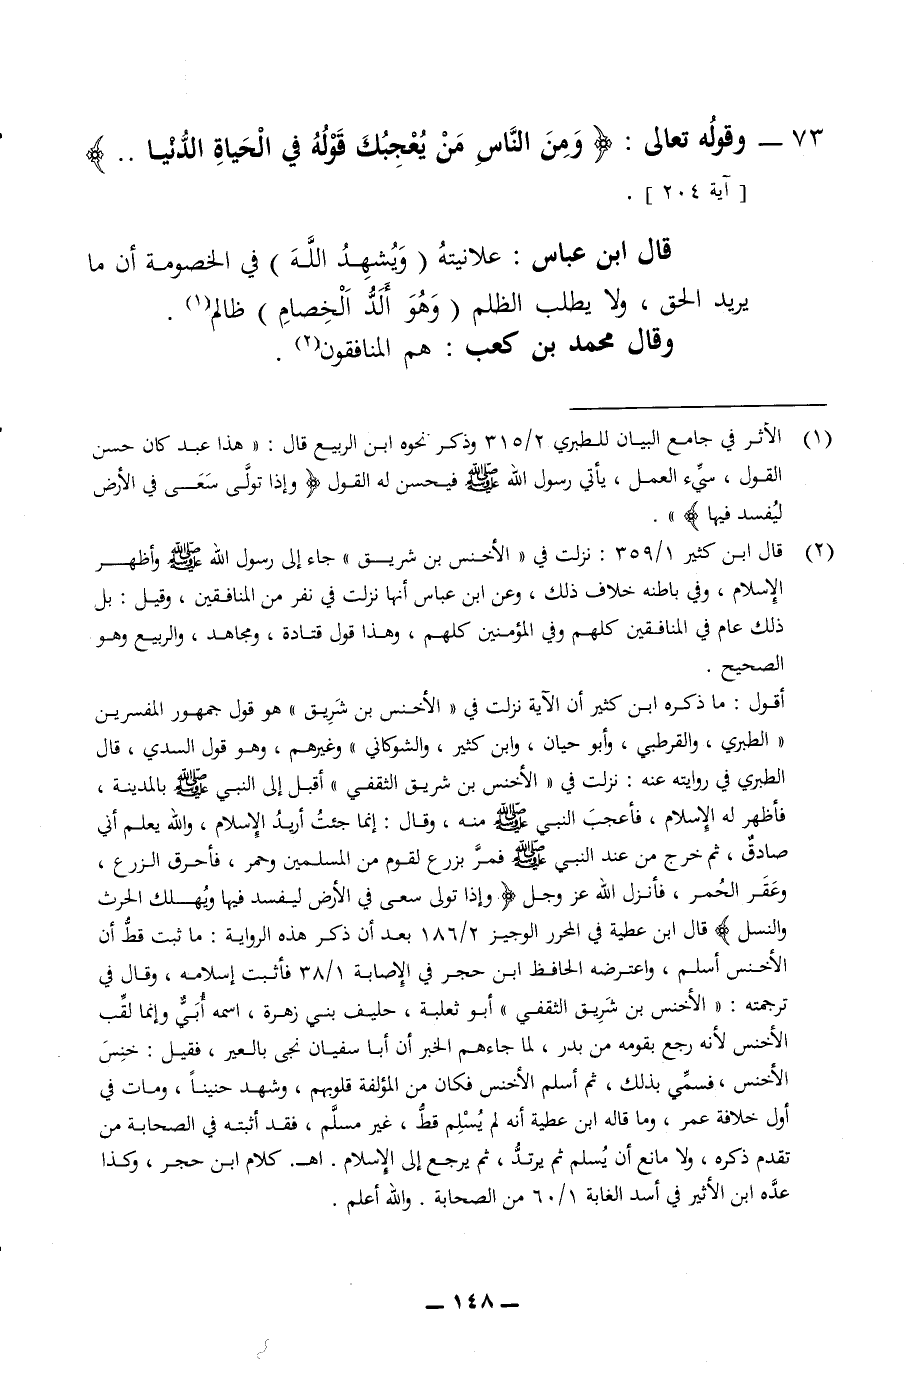 ٧٣ ــ وقولُه تعالى : ﴿ وَمِنَ النَّاسِ مَنْ يُعْجِبُكَ قَوْلُهُ في الْحَياةِ الدُّنْيا .. ﴾
[ آية ٢٠٤ ] .
قال ابن عباس : علانيتهُ ( وَيُشهِدُ اللَّهَ ) في الخصومة أن ما
يريد الحق ، ولا يطلب الظلم ( وَهُوَ أَلَدُّ الْخِصامِ ) ظالم(١) .
وقال محمد بن كعب : هم المنافقون(٢) .
(١) الأثر في جامع البيان للطبري ٣١٥/٢ وذكر نحوه ابن الربيع قال : « هذا عبد كان حسن
القول ، سيِّء العمل ، يأتي رسول الله ﷺ فيحسن له القول ﴿ وإذا تولَّى سَعَى في الأرض
ليُفسد فيها ﴾ » .
(٢) قال ابن كثير ٣٥٩/١ : نزلت في « الأخنس بن شريق » جاء إلى رسول الله ﷺ وأظهر
الإسلام ، وفي باطنه خلاف ذلك ، وعن ابن عباس أنها نزلت في نفر من المنافقين ، وقيل : بل
ذلك عام في المنافقين كلهم وفي المؤمنين كلهم ، وهذا قول قتادة ، ومجاهد ، والربيع وهو
الصحيح .
أقول : ما ذكره ابن كثير أن الآية نزلت في « الأخنس بن شَرِيق » هو قول جمهور المفسرين
« الطبري ، والقرطبي ، وأبو حيان ، وابن كثير ، والشوكاني » وغيرهم ، وهو قول السدي ، قال
الطبري في روايته عنه : نزلت في « الأخنس بن شريق الثقفي » أقبل إلى النبي ﷺ بالمدينة ،
فأظهر له الإسلام ، فأعجبَ النبي ﷺ منه ، وقال : إنما جئتُ أريدُ الإسلام ، والله يعلم أني
صادقٌ ، ثم خرج من عند النبي ﷺ فمرَّ بزرع لقوم من المسلمين وحمر ، فأحرق الزرع ،
وعَقَر الحُمر ، فأنزل الله عز وجل ﴿ وإذا تولى سعى في الأرض ليفسد فيها ويُهلك الحرث
والنسل ﴾ قال ابن عطية في المحرر الوجيز ١٨٦/٢ بعد أن ذكر هذه الرواية : ما ثبت قطُّ أن
الأخنس أسلم ، واعترضه الحافظ ابن حجر في الإصابة ٣٨/١ فأثبت إسلامه ، وقال في
ترجمته : « الأخنس بن شَرِيق الثقفي » أبو ثعلبة ، حليف بني زهرة ، اسمه أُبَيٌّ وإنما لقِّب
الأخنس لأنه رجع بقومه من بدر ، لما جاءهم الخبر أن أبا سفيان نجى بالعير ، فقيل : خنِسَ
الأخنس ، فسمِّي بذلك ، ثم أسلم الأخنس فكان من المؤلفة قلوبهم ، وشهد حنيناً ، ومات في
أول خلافة عمر ، وما قاله ابن عطية أنه لم يُسْلِم قطُّ ، غير مسلَّم ، فقد أثبته في الصحابة من
تقدم ذكره ، ولا مانع أن يُسلم ثم يرتدُّ ، ثم يرجع إلى الإسلام . اهـ. كلام ابن حجر ، وكذا
عدَّه ابن الأثير في أسد الغابة ٦٠/١ من الصحابة . والله أعلم .
ــ ١٤٨ ــ